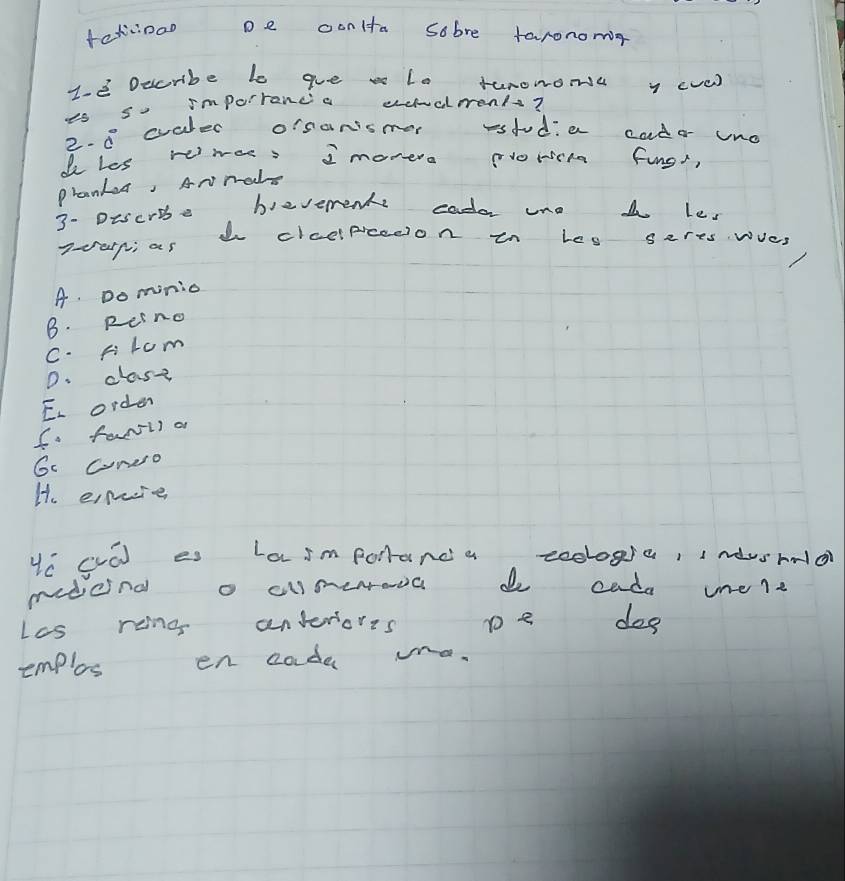 de consulta sobre taxonomia
1-¿ Describe lo que es la taxonomia y cual
es su importancia actualmente?
2-¿ cuales organismos estudia cada uno
de los reinos: monera protista fungi,
plantas, Animals
3- Describe brevemente cada uno de las
de clasificacion en los seres vivos
A. Dominio
B. Reino
C. Filum
D. clase
E. orden
F. familia
G. Genero
H. especie
4¿ cuál es La importancia ecologica, industrial
medicinal o alimenticia de cada uno de
Los reinos anteriores De dos
emplos en cada uno.